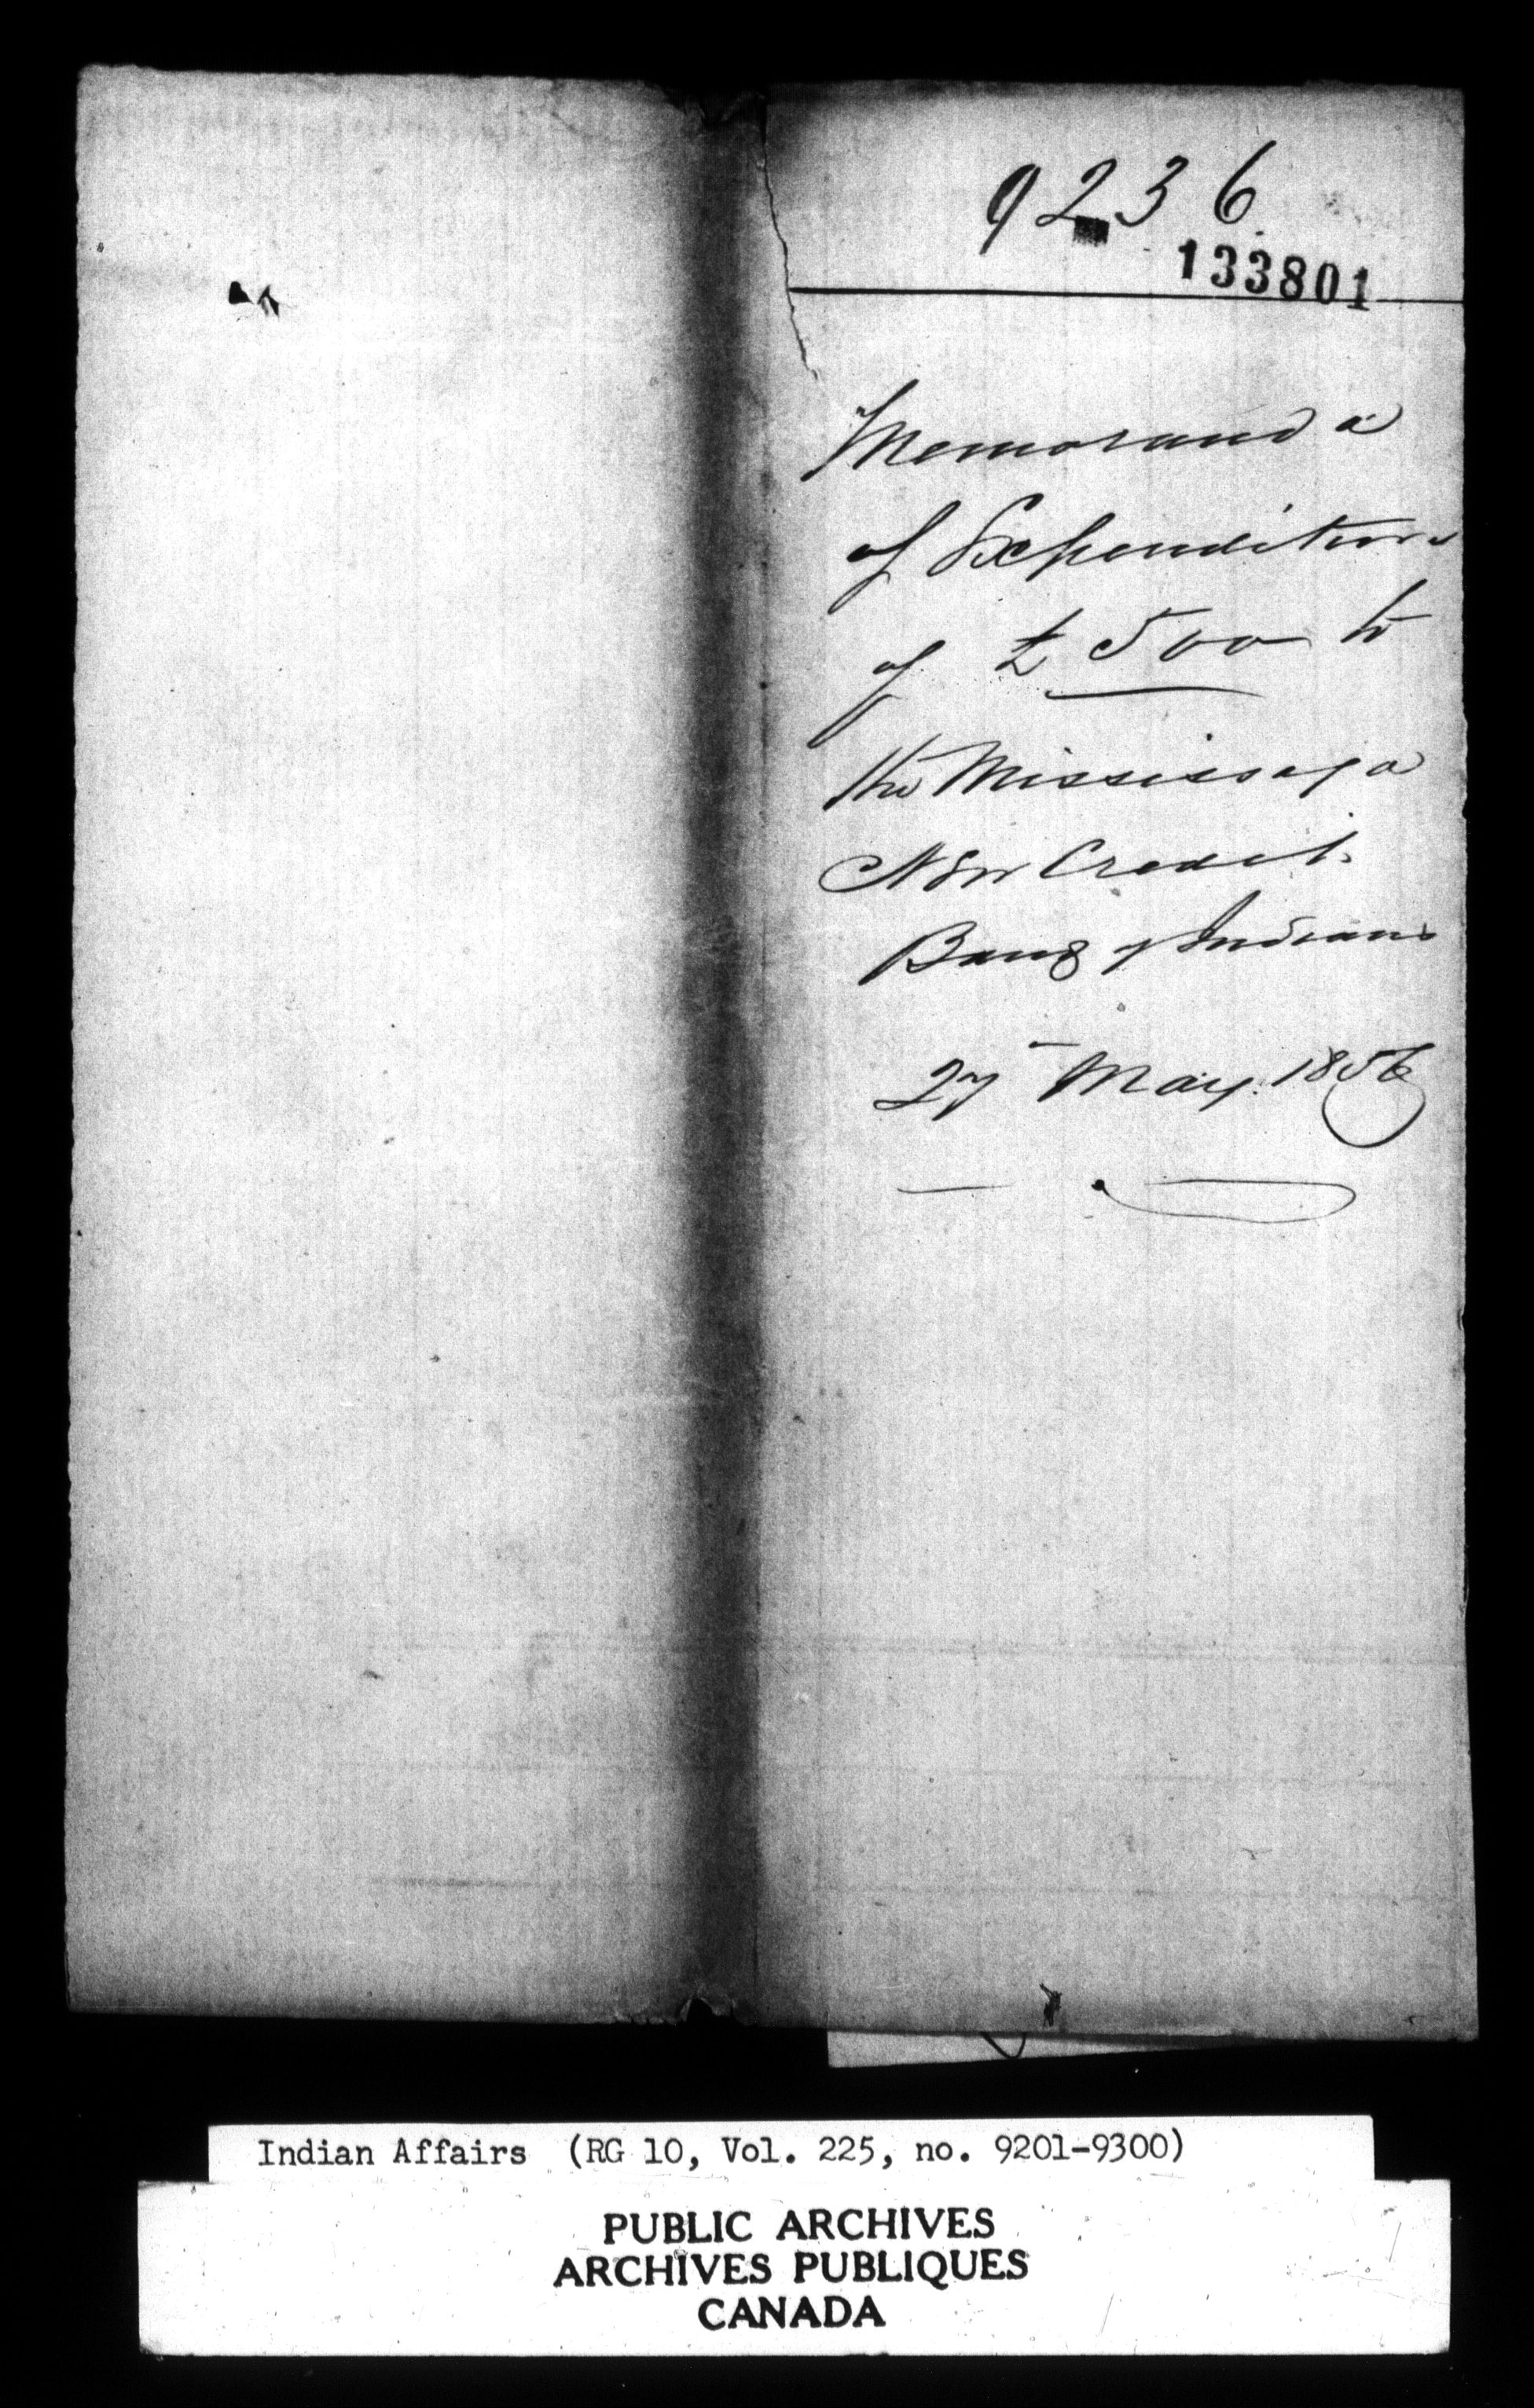 9236
133801
Memoranda
of Expenditure
of £500 to
the Mississaga
New Credit
Band of Indians
27 May 1856
Indian Affairs (RG 10, Vol. 225, no. 9201-9300)
PUBLIC ARCHIVES
ARCHIVES PUBLIQUES
CANADA